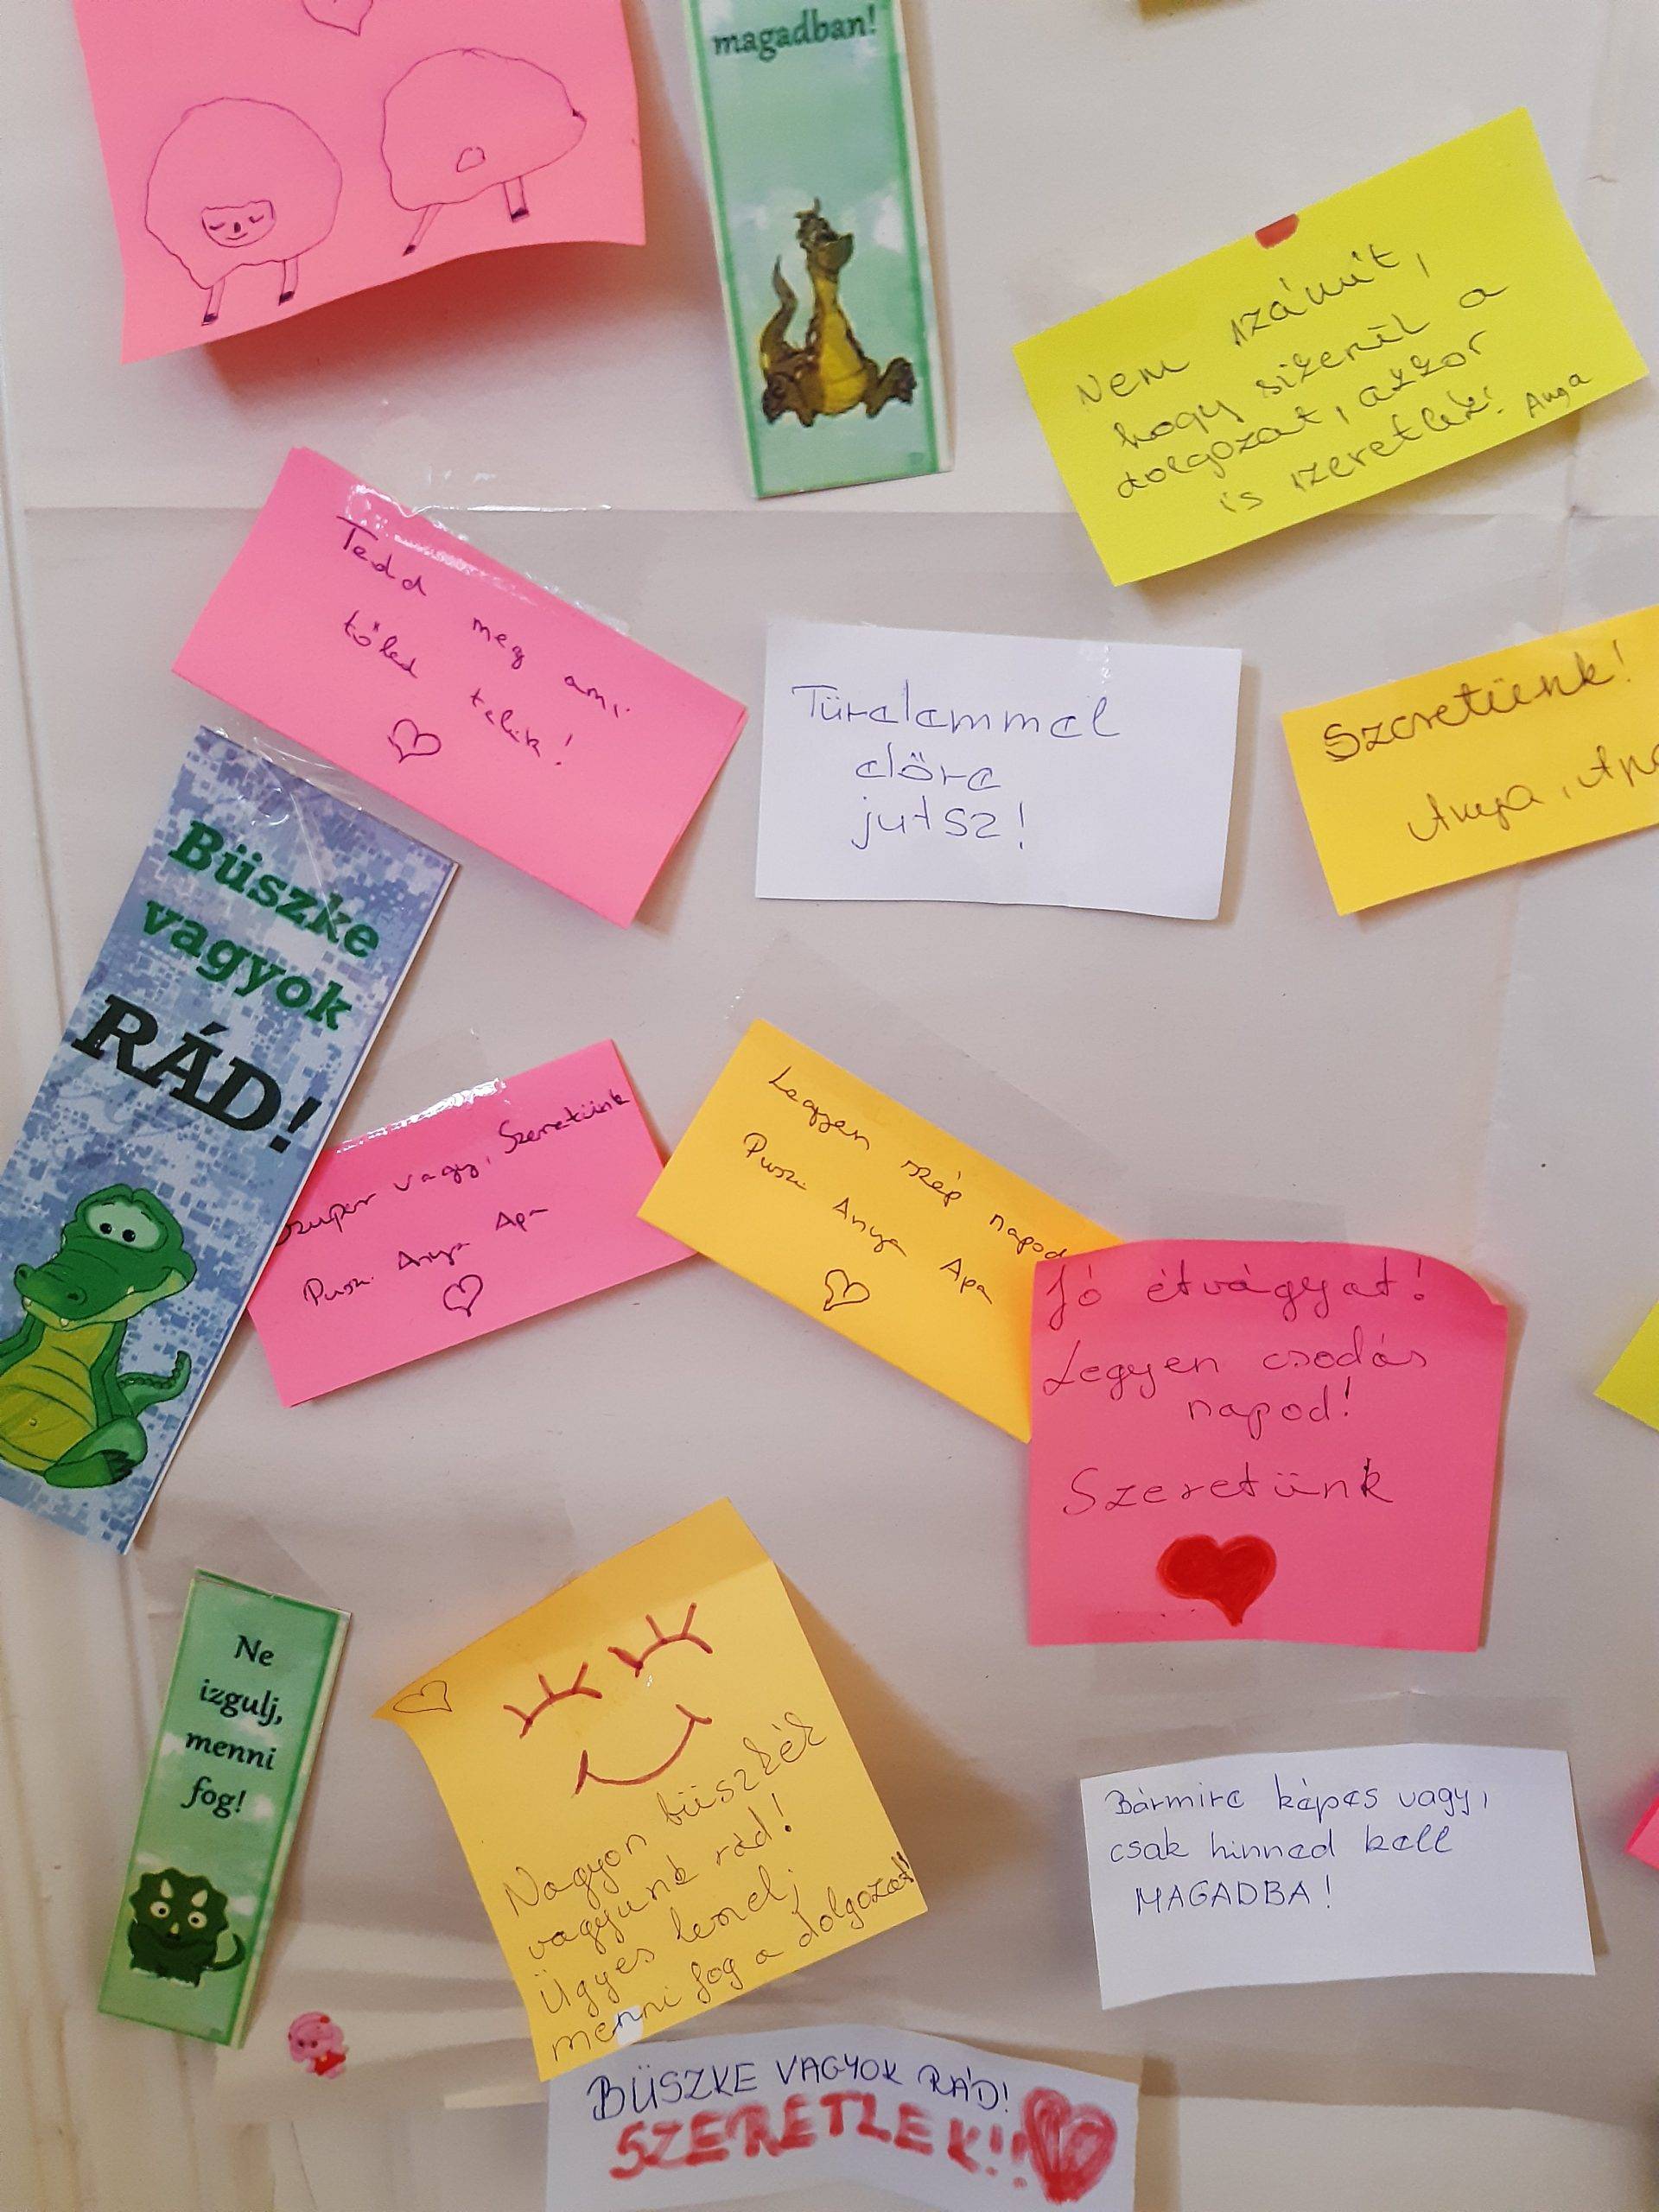 magadban!
Nem számít,
hogy sikerül a
dolgozat, akkor
is szeretlek! Anya
Tedd meg ami
tőled telik!
Türelemmel
előre
jutsz!
Szeretünk!
Anya, Apa
Büszke
vagyok
RÁD!
Szuper vagy, Szeretünk
Puszi Anya Apa
Legyen szép napod
Puszi Anya Apa
Jó étvágyat!
Legyen csodás
napod!
Szeretünk
Ne
izgulj,
menni
fog!
Nagyon büszkék
vagyunk rád!
Ügyes leszel,
menni fog a dolgozat!
Bármire képes vagy,
csak hinned kell
MAGADBA!
BÜSZKE VAGYOK RÁD!
SZERETLEK!!